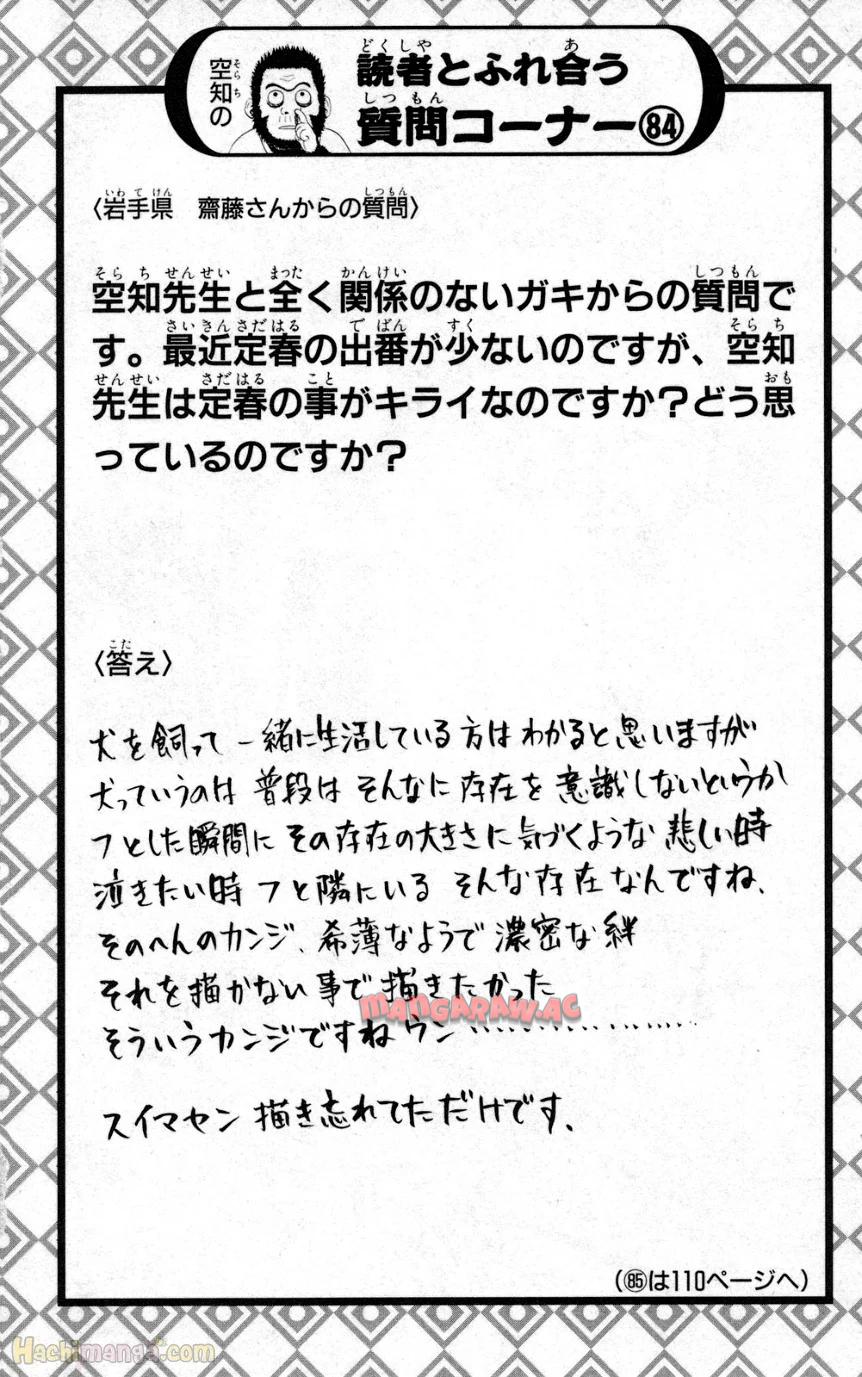 空知の
読者とふれ合う
質問コーナー84
〈岩手県　齋藤さんからの質問〉
空知先生と全く関係のないガキからの質問で
す。最近定春の出番が少ないのですが、空知
先生は定春の事がキライなのですか？どう思
っているのですか？
〈答え〉
犬を飼って一緒に生活している方はわかると思いますが
犬っていうのは普段はそんなに存在を意識しないというか
フとした瞬間にその存在の大きさに気づくような悲しい時
泣きたい時フと隣にいるそんな存在なんですね、
そのへんのカンジ、希薄なようで濃密な絆
それを描かない事で描きたかった
MANGARAW.AC
そういうカンジですねウン………………
スイマセン描き忘れてただけです、
（85は110ページへ）
Hachimanga.com